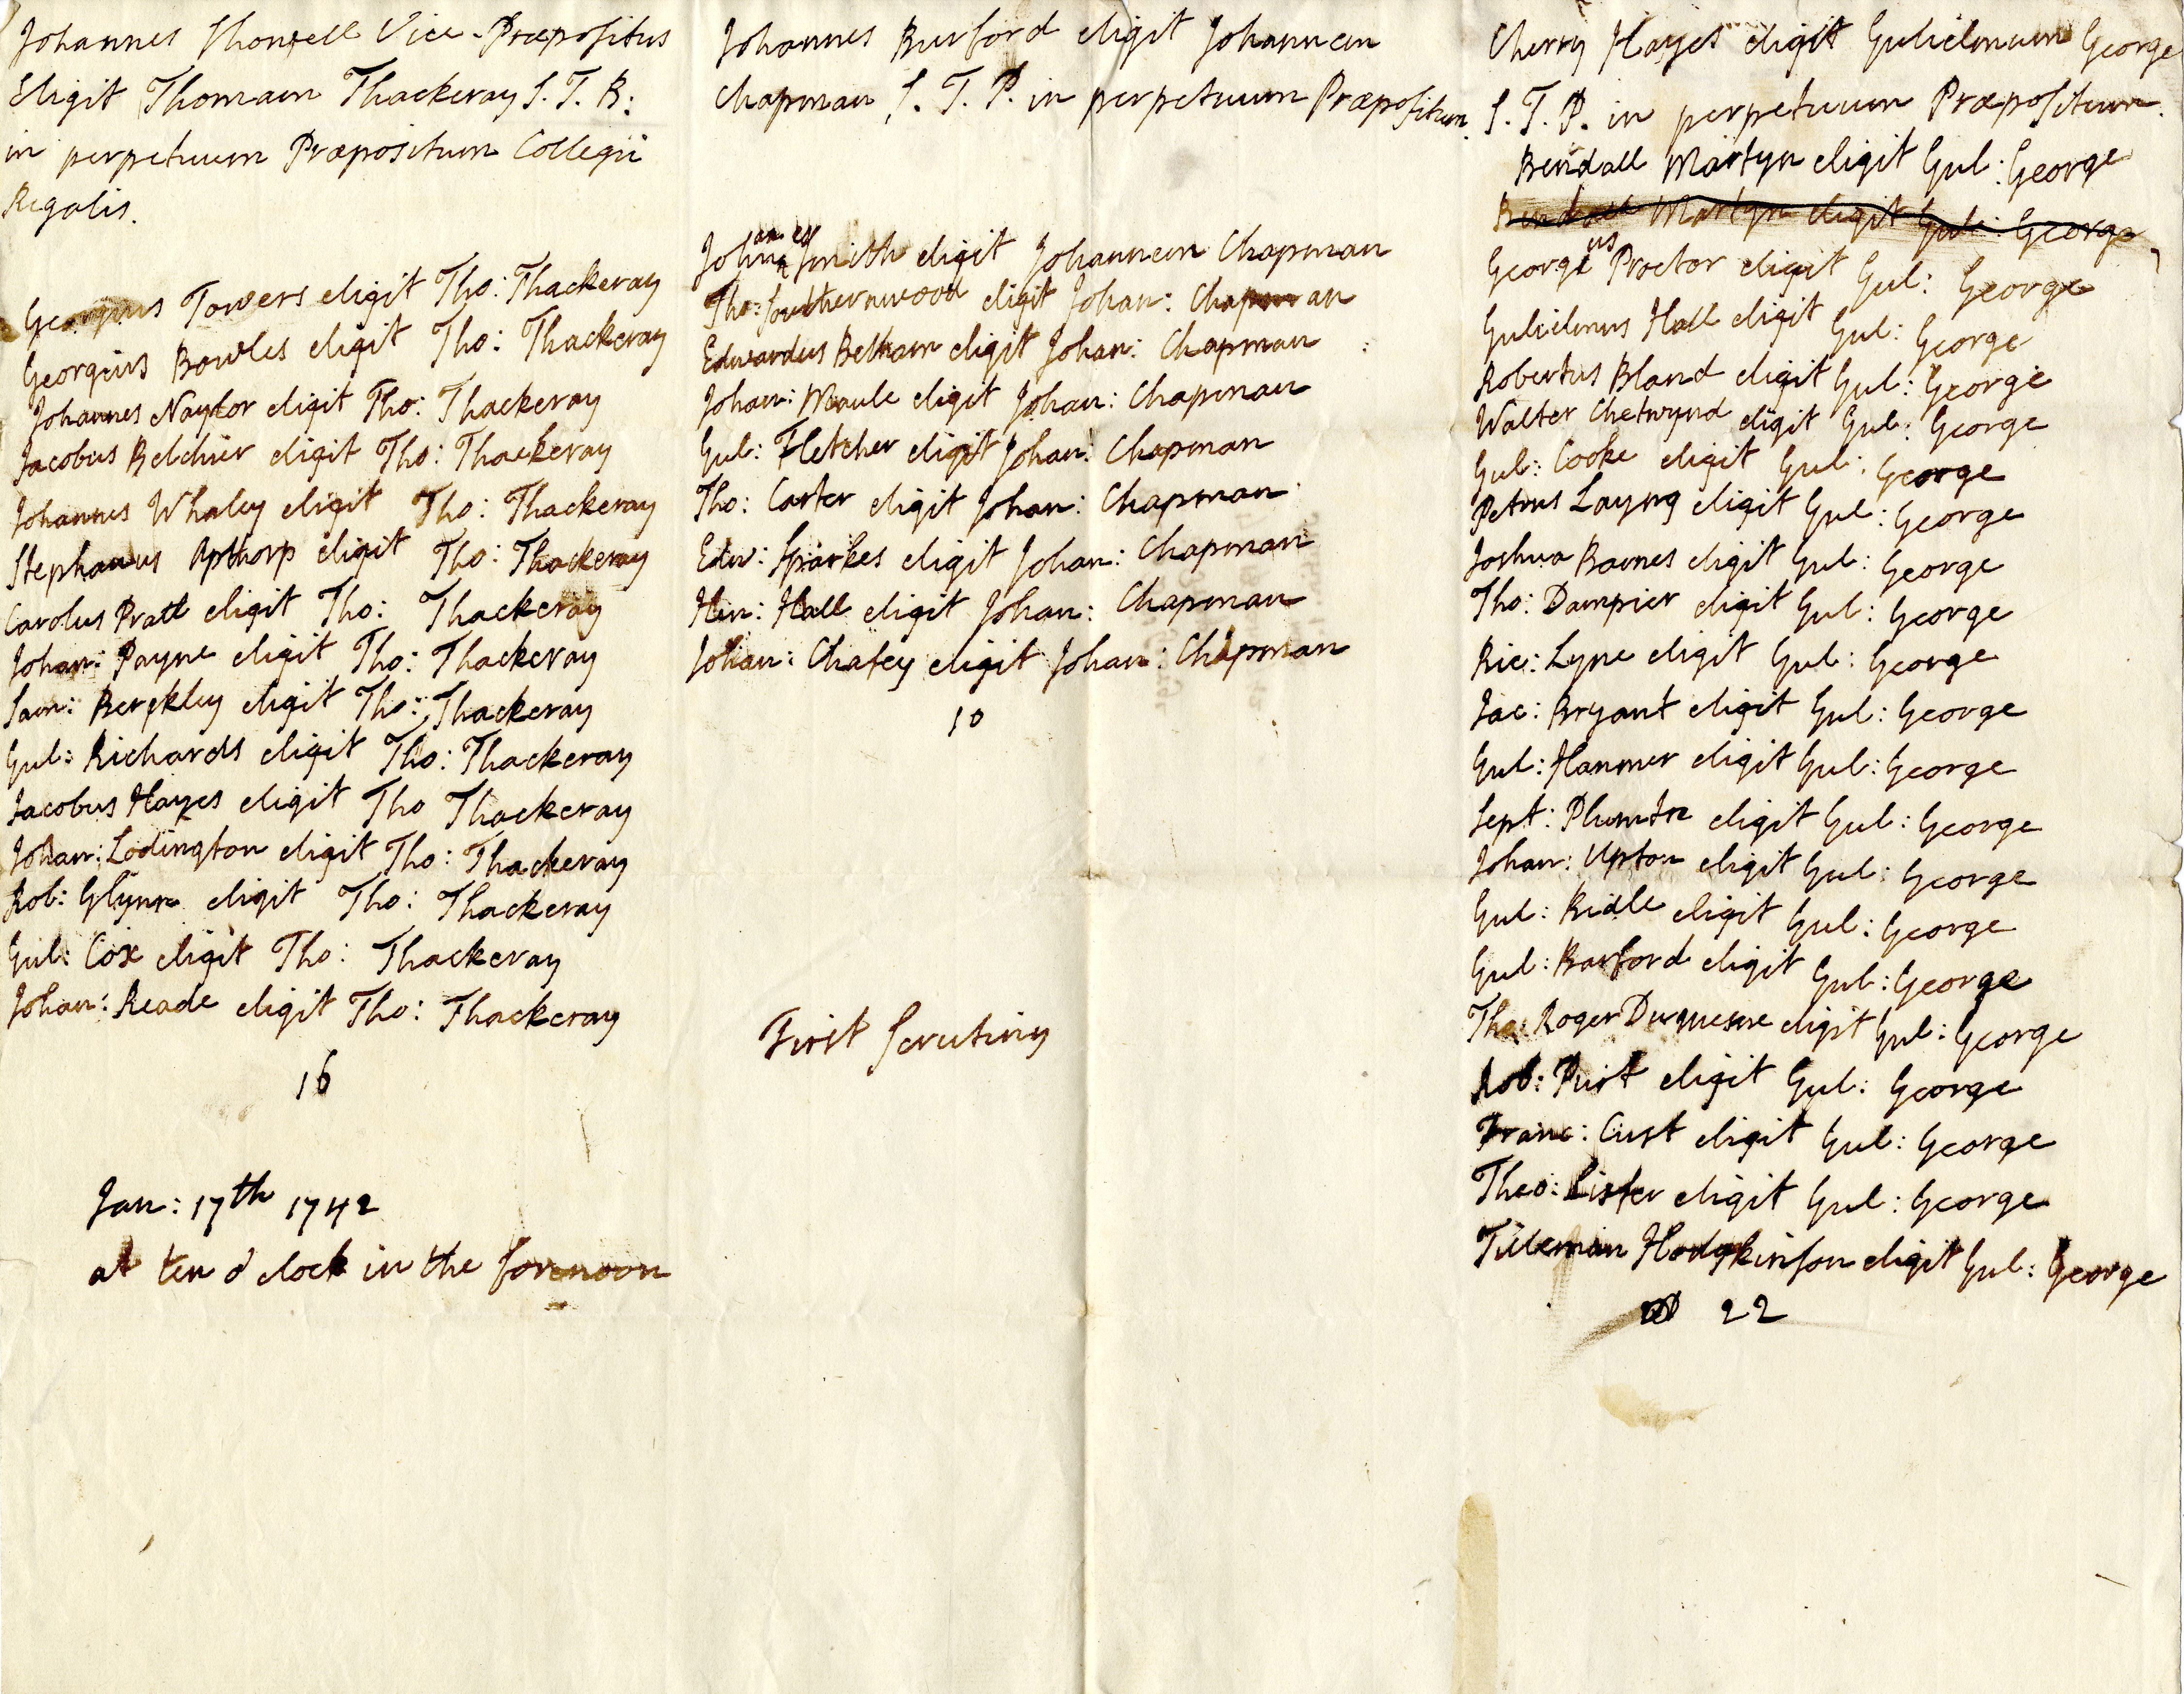 Johannes Vice-Præpositus
Eligit Thomam Thackeray S. T. B:
in perpetuum Præpositum Collegii
Regalis.
Georgius Towers eligit Tho: Thackeray
Georgius Bowles eligit Tho: Thackeray
Johannes Naylor eligit Tho: Thackeray
Jacobus Belchier eligit Tho: Thackeray
Johannes Whaley eligit Tho: Thackeray
Stephanus Apthorp eligit Tho: Thackeray
Carolus Pratt eligit Tho: Thackeray
Johan: Payne eligit Tho: Thackeray
Sam: Berekley eligit Tho: Thackeray
Gul: Richards eligit Tho: Thackeray
Jacobus Hayes eligit Tho Thackeray
Johan: Lodington eligit Tho: Thackeray
Rob: Glynn eligit Tho: Thackeray
Gul: Cox eligit Tho: Thackeray
Johan: Reade eligit Tho: Thackeray
16
Jan: 17th 1742
at ten o' clock in the forenoon
Johannes Burford eligit Johannem
Chapman S. T. P. in perpetuum Præpositum.
Johannes Smith eligit Johannem Chapman
Tho: Southernwood eligit Johan: Chapman
Edwardus Betham eligit Johan: Chapman
Johan: Maule eligit Johan: Chapman
Gul: Fletcher eligit Johan: Chapman
Tho: Carter eligit Johan: Chapman
Edw: Sparkes eligit Johan: Chapman
Hen: Hall eligit Johan: Chapman
Johan: Chafey eligit Johan: Chapman
10
First Scrutiny
Cherry Hayes eligit Gulielmum George
S. T. P. in perpetuum Præpositum.
Bendall Martyn eligit Gul: George
Bendall Martyn eligit Gul: George
Georgius Proctor eligit Gul: George
Gulielmus Hall eligit Gul: George
Robertus Bland eligit Gul: George
Walter Chetwynd eligit Gul: George
Gul: Cooke eligit Gul: George
Petrus Layng eligit Gul: George
Joshua Barnes eligit Gul: George
Tho: Dampier eligit Gul: George
Ric: Lyne eligit Gul: George
Jac: Bryant eligit Gul: George
Gul: Hanmer eligit Gul: George
Sept: Plumtre eligit Gul: George
Johan: Upton eligit Gul: George
Gul: Ridle eligit Gul: George
Gul: Barford eligit Gul: George
Tho: Roger Duquesne eligit Gul: George
Rob: eligit Gul: George
Franc: Cust eligit Gul: George
Theo: Lister eligit Gul: George
Tilleman Hodgkinson eligit Gul: George
22